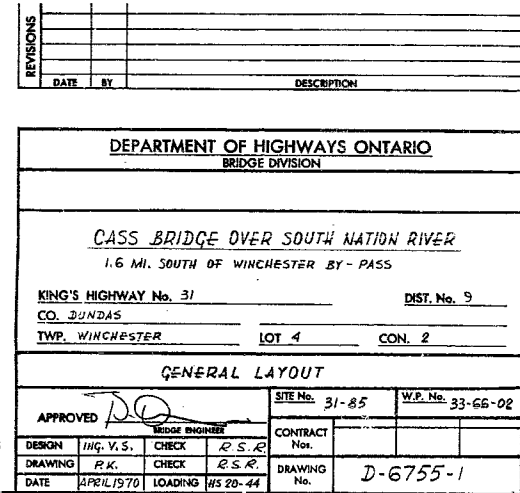 REVISIONS
DATE BY DESCRIPTION
DEPARTMENT OF HIGHWAYS ONTARIO
BRIDGE DIVISION
CASS BRIDGE OVER SOUTH NATION RIVER
1.6 MI. SOUTH OF WINCHESTER BY-PASS
KING'S HIGHWAY No. 31 DIST. No. 9
CO. DUNDAS
TWP. WINCHESTER LOT 4 CON. 2
GENERAL LAYOUT
APPROVED
BRIDGE ENGINEER
SITE No. 31-85 W.P. No. 33-66-02
CONTRACT Nos.
DESIGN ING. V.S. CHECK R.S.R.
DRAWING P.K. CHECK R.S.R.
DATE APRIL 1970 LOADING HS 20-44
DRAWING No. D-6755-1